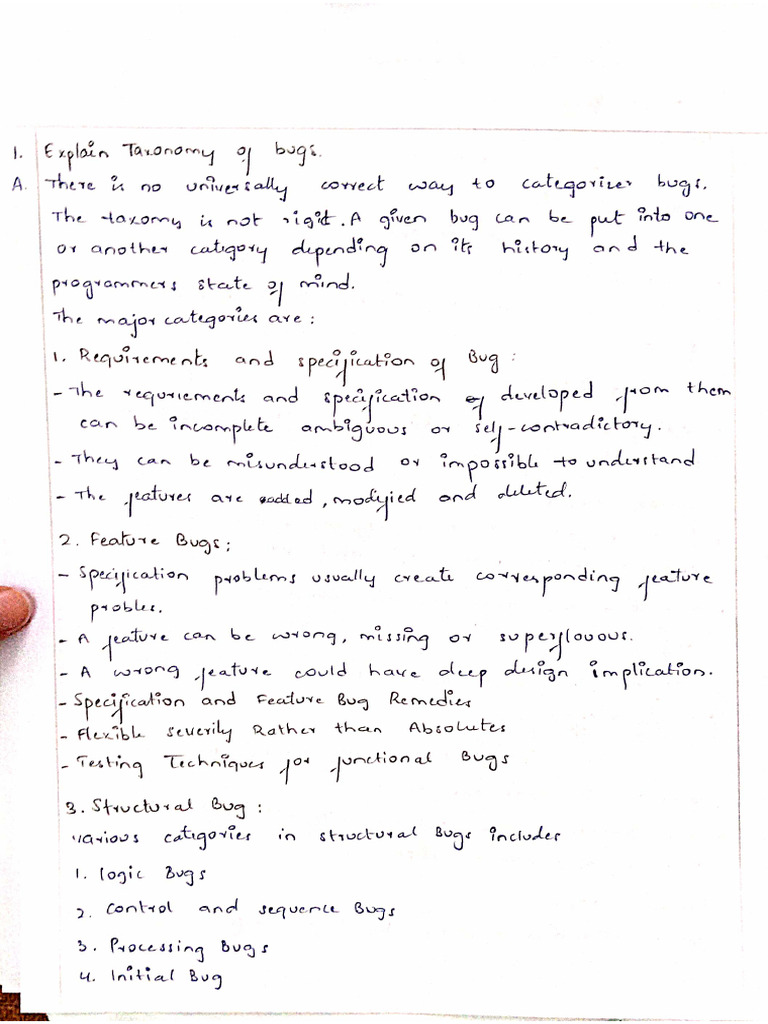 1. Explain Taxonomy of bugs.
A. There is no universally correct way to categorizer bugs.
The taxomy is not rigid. A given bug can be put into one
or another category depending on its history and the
programmers state of mind.
The major categories are :
1. Requirements and specification of Bug :
- The requriements and specification of developed from them
can be incomplete ambiguous or self-contradictory.
- They can be misunderstood or impossible to understand
- The features are added, modified and deleted.
2. Feature Bugs;
- Specification problems usually create corresponding feature
probles.
- A feature can be wrong, missing or superflouous.
- A wrong feature could have deep design implication.
- Specification and Feature Bug Remedies
- Flexible Severily Rather than Absolutes
- Testing Techniques for functional Bugs
3. Structural Bug :
various categories in structural Bugs includes
1. logic Bugs
2. Control and sequence Bugs
3. Processing Bugs
4. Initial Bug